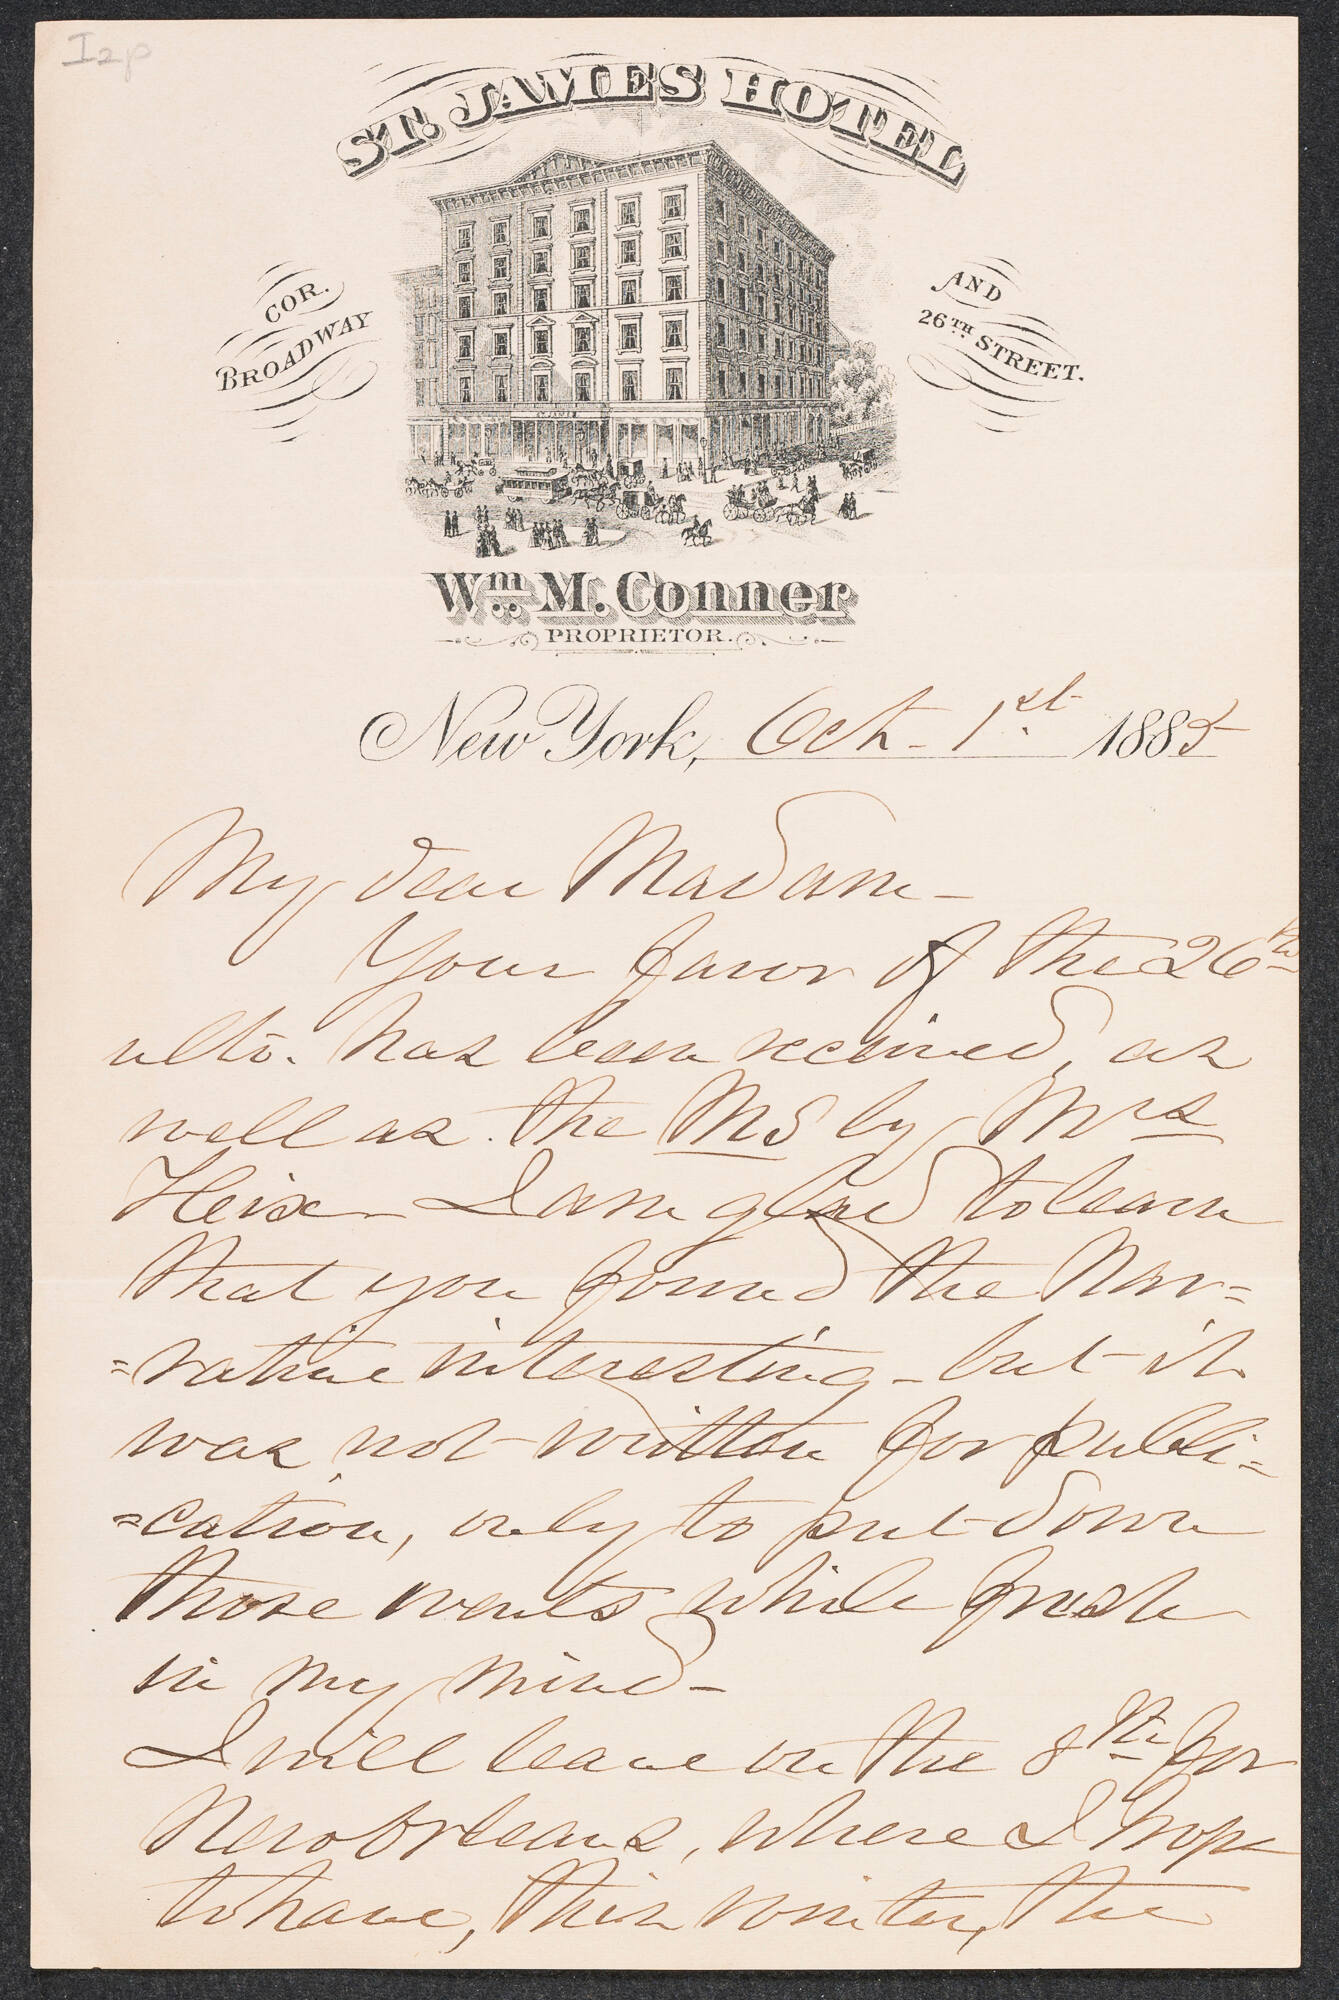 I2p
ST. JAMES HOTEL
COR. BROADWAY
AND 26TH STREET.
ST. JAMES
Wm. M. Conner
PROPRIETOR.
New York, Oct. 1st. 1885
My dear Madam—
Your favor of the 26th
ulto. has been received, as
well as the MS by Mrs
Heix— I am glad to learn
that you found the Nar=
=rative interesting— but it
was not written for publi=
=cation, only to put down
those events while fresh
in my mind—
I will leave on the 8th for
New Orleans, where I hope
to have, this winter, the